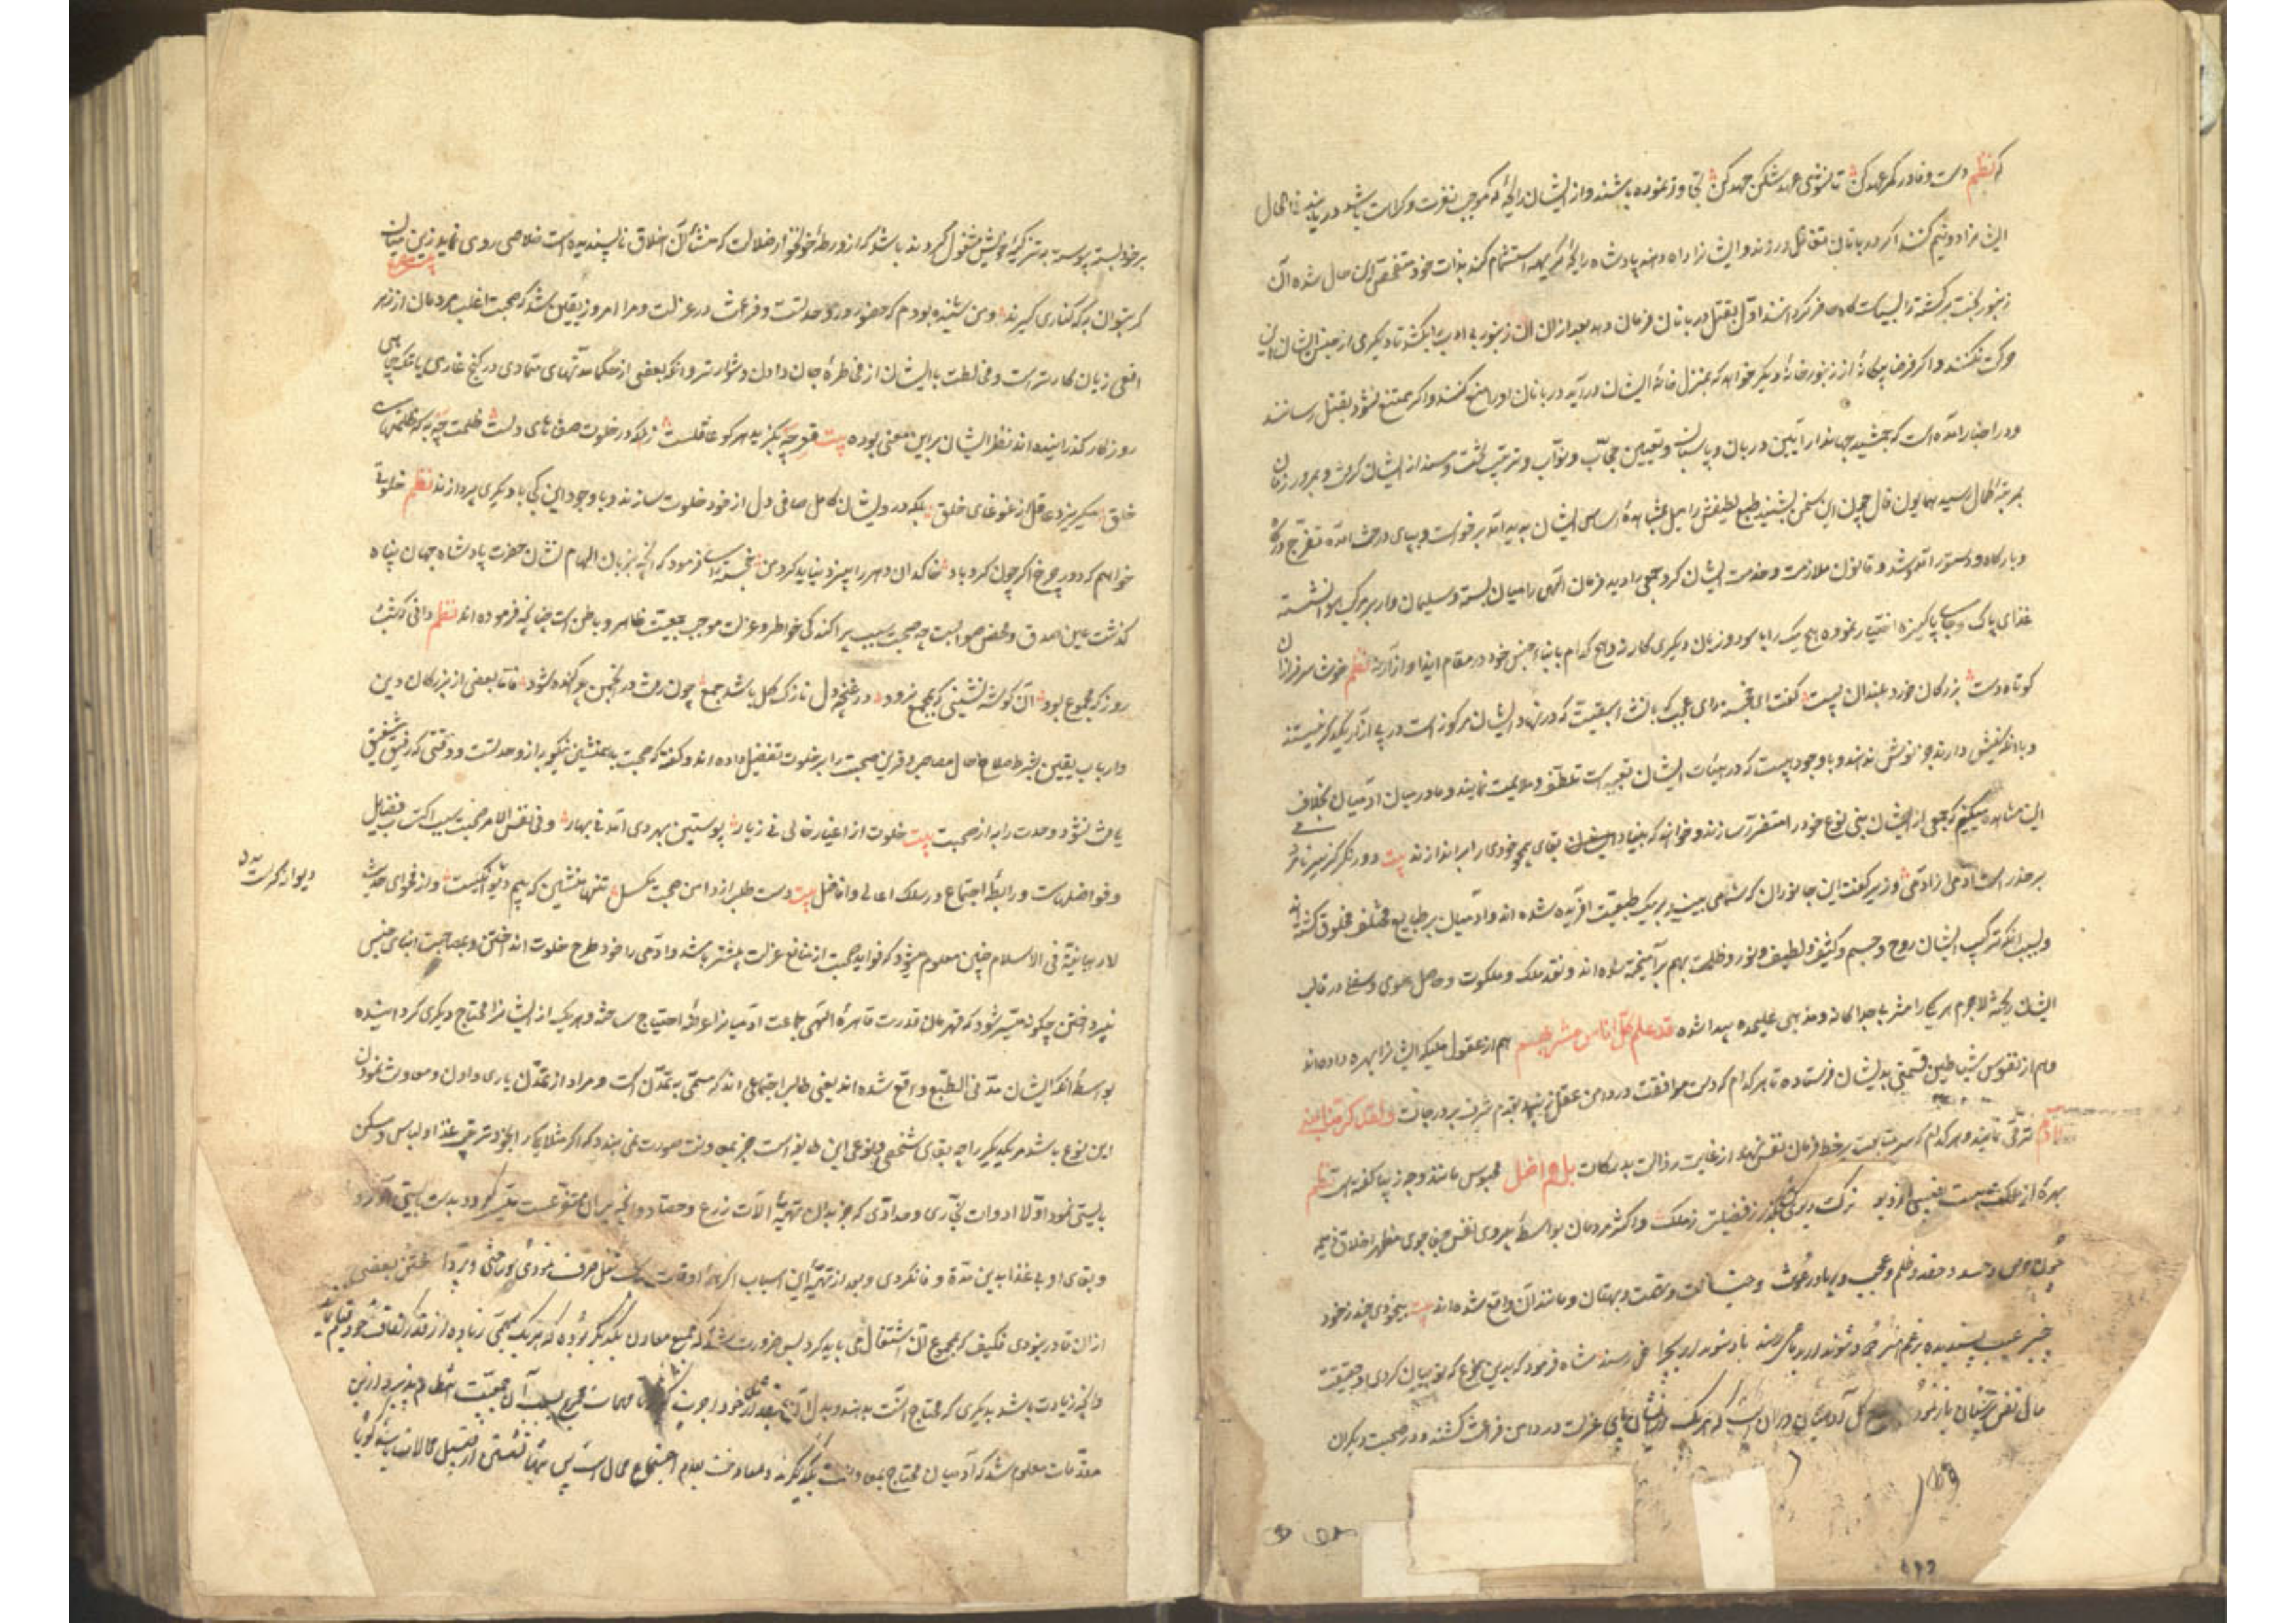 که نظم دست وفا در کمر عهد کن تا نشوی عهدشکن جهد کن تجاوز نموده باشند و از ایشان رایحهٔ که موجب نفرت و کراهت باشد دریابند فی الحال
ایشانرا دو نیم کنند اگر دربانان تغافل ورزند و ایشانرا راه دهند پادشاه رایحهٔ کریهه استشمام کند بذات خود متفحص این حال شده آن
زنبور بخت برگشته را بسیاستگاه حاضر گردانند اول بقتل دربانان فرمان دهد بعد از آن آن زنبور بی ادب را بکشد تا دیگری از جنس ایشان این
حرکت نکنند و اگر فرضا بیگانهٔ از زنبورخانهٔ دیگر خواهد که بمنزل خانهٔ ایشان درآید دربانان او را منع کنند و اگر ممتنع نشود بقتل رسانند
و در اخبار آمده است که جمشید جهاندار آیین دربان و پاسبان و تعیین حجاب و نواب و ترتیب تخت و مسند از ایشان گرفت و بمرور زمان
بمرتبهٔ کمال رسید همایون فال چون این سخن بشنید طبع لطیفش را میل مشاهدهٔ اساس ایشان پدید آمد برخواست و بپای درخت آمده تفرج درگاه
و بارگاه و دستور آمد و شد و قانون ملازمت و خدمت ایشان کرد جمعی را دید فرمان الهی را میان بسته و سلیمان وار بر مرکب هوا نشسته
غذای پاک و جای پاکیزه اختیار نموده هیچ یک را با سود و زیان دیگری کار نه و هیچ کدام با بنای جنس خود در مقام ایذا و آزار نه نظم خوش سرفرازان
کوتاه دست بزرگان خورد بلندان پست گفت ای خجسته رای عجب که با نشاء سبعیت که در نهاد ایشان مرکوز است در پی آزار یکدیگر نیستند
و با آنکه نیش دارند جز نوش ندهند و با وجود هیبت که در هیئات ایشان تعبیه است تعطف و ملایمت نمایند و ما در میان آدمیان بخلاف
این مشاهده میکنیم که جمعی از ایشان بنی نوع خود را متضرر سازند و خواهند که بنیاد بقای همچو خودی را براندازند بیت دور نگر کز سر نامردمی
بر حذر است آدمی از آدمی وزیر گفت این جانوران که شاه می بیند بر یک طبیعت آفریده شده اند و آدمیان بر طبایع مختلف مخلوق گشته اند
و بسبب آنکه ترکیب ایشان روح و جسم و کثیف و لطیف و نور و ظلمت بهم برآمیخته شده اند و نقد ملک و ملکوت و حاصل علوی و سفلی در قالب
ایشان ریخته لاجرم هر یک را مشربی جداگانه و مذهبی علیحده پیدا شده قد علم کل اناس مشربهم هم از عقول ملیکه ایشانرا بهره داده اند
و هم از نفوس شیاطین قسمتی بدیشان فرستاده تا هر کدام که دست موافقت در دامن عقل زند بقدم شرف بر درجات و لقد کرمنا بنی
آدم ترقی نمایند و هر کدام که سر متابعت بر خط فرمان نفس نهد از غایت رذالت بدرکات بل هم اضل محبوس ماند و چه زیبا گفته است نظم
بهره از ملکت هست و نصیبی از دیو ترک دیوی کن و بگذر ز فضیلت ز ملک و اکثر مردمان بواسطهٔ پیروی نفس جفاجوی مظهر اخلاق ذمیمه
چون حرص و حسد و حقد و ظلم و عجب و ریا و رعونت و خباثت و تهمت و بهتان و مانند آن واقع شده اند بیت بیخودی چند ز خود
بی خبر عیب پسندیده برغم هنر دود شوند ار بدماغی رسند باد شوند ار بچراغی رسند شاه فرمود که بدین نوع که تو بیان کردی و حقیقت
حال نفس ایشان باز نمودی صلاح کل آدمیان در آن است که هر یک از ایشان پای عزلت در دامن فراغت کشند و در صحبت دیگران
وقار
بر خود بسته پیوسته بتزکیهٔ خویش مشغول گردند باشد که از ورطهٔ خونخوار ضلالت که منشاء آن اخلاق ناپسندیده است خلاصی روی نماید زین میان
گر بتوان به که کناری گیرند و من شنیده بودم که حضور در وحدتست و فراغت در عزلت و مرا امروز یقین شد که صحبت اغلب مردمان از زهر
افعی زیان کارتر است و مخالطت با ایشان از مخاطرهٔ جان دادن دشوارتر و آنکه بعضی از حکما مدتهای متمادی در کنج غاری یا تنگ چاهی
روزگار گذرانیده اند نظر ایشان بر این معنی بوده بیت قعر چه بگزید هر کو عاقلست زانکه در خلوت صفاهای دلست ظلمت چه به که ظلمتهای
خلق میگریزد عاقل از غوغای خلق بلکه درویشان کامل صافی دل از خود خلوت سازند و با وجود این کی با دیگری پردازند نظم خلوتی
خواهم که دور چرخ اگر چون گردباد خاکدان دهر را بیزد نیابد گرد من خجسته رای فرمود که آنچه بزبان الهام نشان حضرت پادشاه جهان پناه
گذشت عین صدق و محض صوابست چه صحبت سبب پراکندگی خواطر و عزلت موجب جمعیت ظاهر و باطن است چنانچه فرموده اند نظم دانی که شب و
روز که مجموع بود آن گوشه نشینی که بمجمع نرود در غنچه دل نازک گل باشد جمع چون رفت در انجمن پراکنده شود فاما بعضی از بزرگان دین
و ارباب یقین بشرط صلاح حال مصاحب و قرین صحبت را بر خلوت تفضیل داده اند و گفته که صحبت با همنشین نیکو به از وحدتست و وقتی که رفیق شفیق
یافت نشود وحدت را به از صحبت بیت خلوت از اغیار خالی نی ز یار پوستین بهر دی آمد نی بهار و فی نفس الامر صحبت سبب اکتساب فضایل
و فواضل است و رابطهٔ اجتماع در سلک اعالی و افاضل بیت دست طلب از دامن صحبت مگسل تنها منشین که بیم دیوانگیست و از فحوای حدیث
دیوانگی است
لا رهبانیة فی الاسلام چنین معلوم میشود که فواید صحبت از منافع عزلت بیشتر باشد و آدمی را خود طرح خلوت انداختن و بمصاحبت ابنای جنس
نپرداختن چگونه میسر شود که قهرمان قدرت قاهرهٔ الهی جماعت آدمیانرا عرضهٔ احتیاج ساخته و هر یک از ایشانرا محتاج دیگری گردانیده
بواسطهٔ آنکه ایشان مدنی الطبع واقع شده اند یعنی طالب اجتماعی اند که مسمی به تمدن است و مراد از تمدن یاری دادن و معاونت نمودن
این نوع باشد مر یکدیگر را چه بقای شخصی و نوعی این طایفه است جز بمعاونت صورت نمی بندد که اگر مثلا یک کس را بخود ترتیب غذا و لباس و مسکن
بایستی نمود اولا ادوات نجاری و حدادی که جز بدان تهیهٔ آلات زرع و حصاد و آنچه بر آن متفرعست میسر نگردد بدست بایستی آورد
و بقای او بی غذا بدین مدة وفا نکردی و بعد از تهیهٔ این اسباب اگر همهٔ اوقات یک شغل صرف نمودی بر
از آن قادر نبودی فکیف که بمجموع آن اشتغال می باید کرد پس ضرورت شد که جمع معاون یکدیگر بوده که هر یک بمهمی زیاده از قدر کفاف خود قیام نمایند
و آنچه زیادت باشد بدیگری که محتاج آنست بدهند و بدل آن بقدر عمل خود اجرت مهمات آن جمعیت انتظام پذیرد و از این
مقدمات معلوم شد که آدمیان محتاج بمعاونت یکدیگرند و معاونت بعدم اجتماع محال است پس تنها نشستن از قبیل محالات باشد